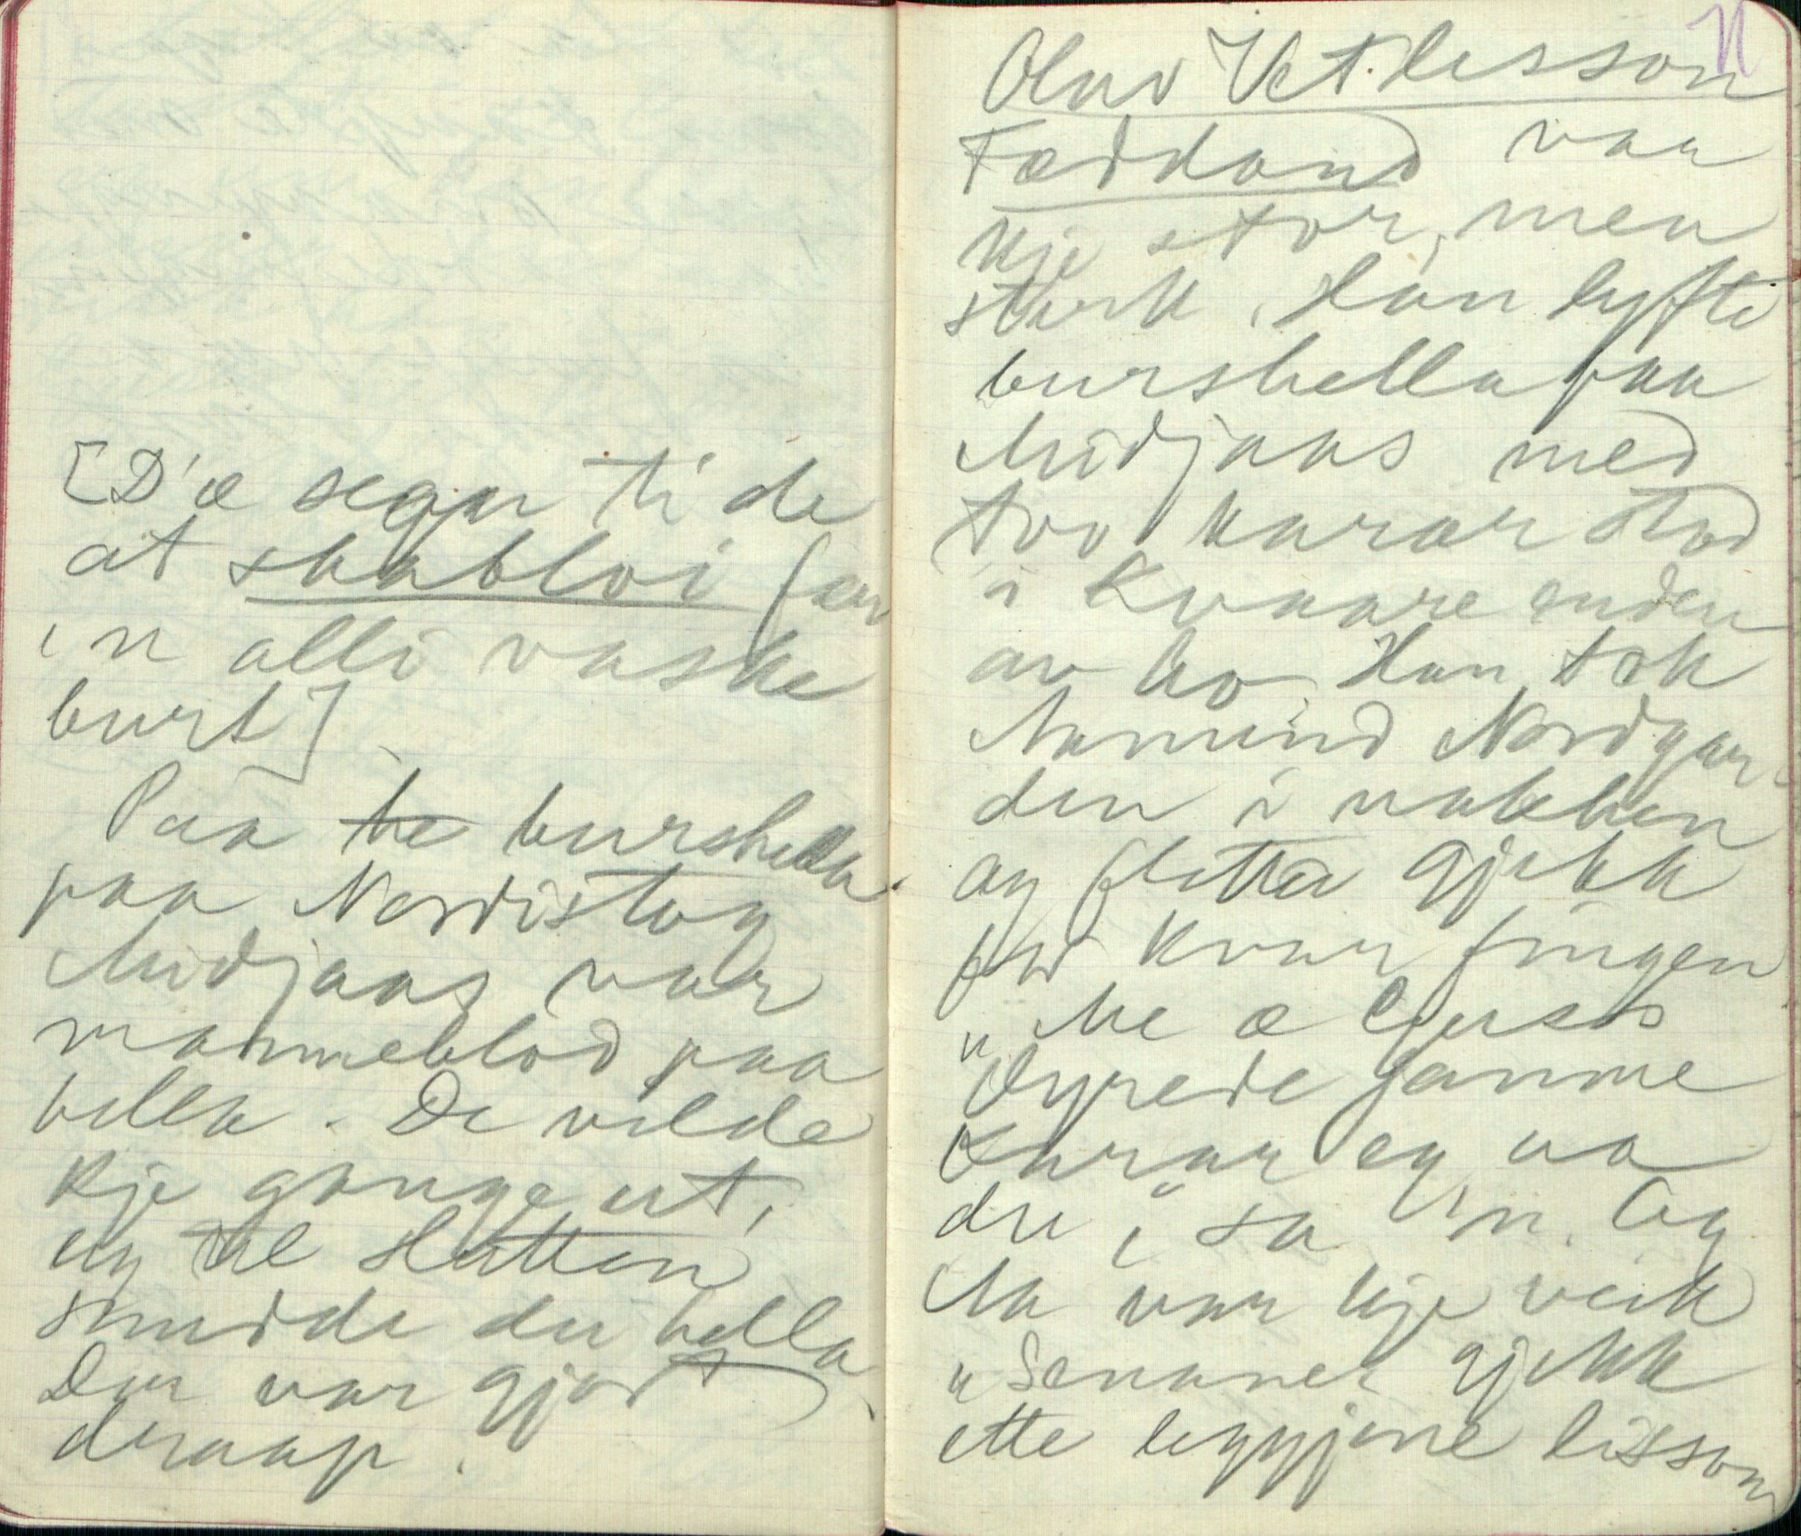 [D'æ segar ti de
at skabloi fær
in alli vaske
burt]
Paa he burshella
paa Nordistog
Midjaas var
manneblod paa
hella. De vilde
kje gange ut,
og Hatten
snudde der hella
Der var gjort
draap.
11
Olav Vetlesson
Fæddand var
kje stor, men
sterk. Han lyfte
burshella paa
Midjaas med
tvo karar stod
i kvaare enden
av ho. Han tok
Aamund Nordgar-
den i nakken
og flitta gjekk
fød kvar fingen
"Me æ
Dyrede
karar eg aa
du", sa 'n. Og
Aa var kje veik
"Senanes gjekk
ette leggjene lissom